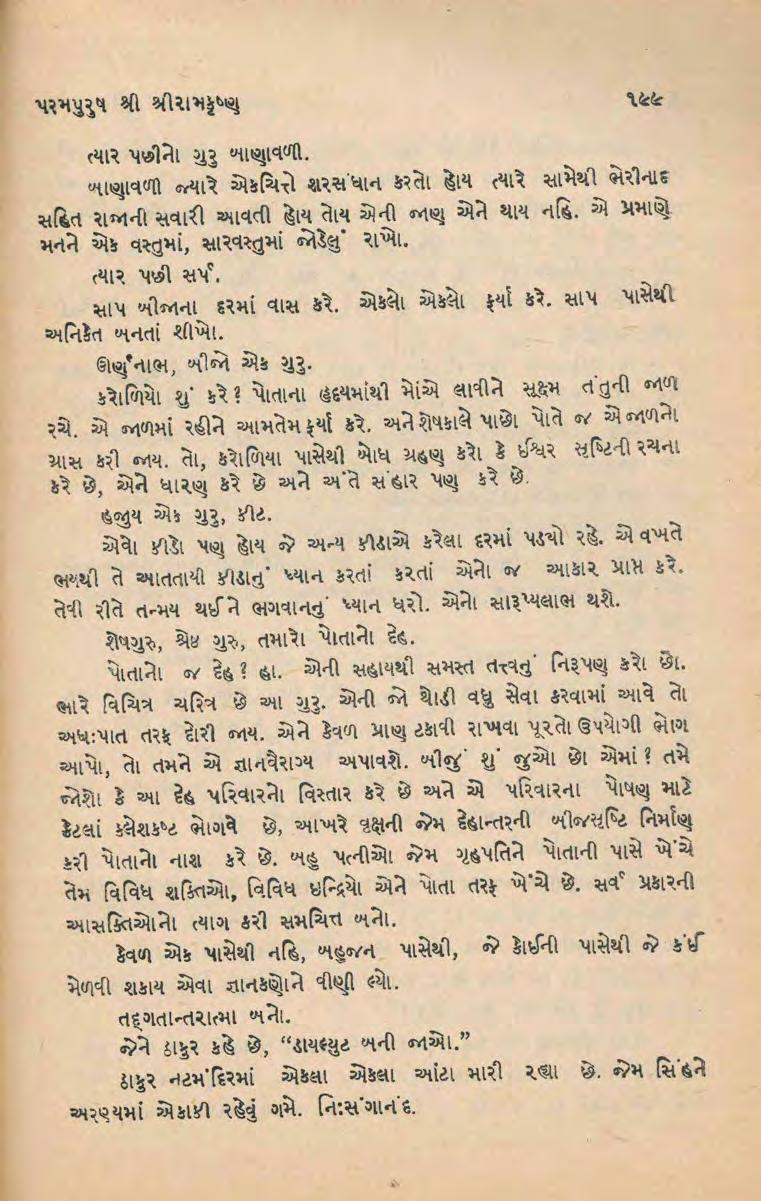 પરમપુરુષ શ્રી શ્રીરામકૃષ્ણ ૧૯૯
ત્યાર પછીનો ગુરુ બાણાવળી.
બાણાવળી જ્યારે એકચિત્તે શરસંધાન કરતો હોય ત્યારે સામેથી ભેરીનાદ
સહિત રાજાની સવારી આવતી હોય તોય એની જાણ એને થાય નહિ. એ પ્રમાણે
મનને એક વસ્તુમાં, સારવસ્તુમાં જોડેલું રાખો.
ત્યાર પછી સર્પ.
સાપ બીજાના દરમાં વાસ કરે. એકલો એકલો ફર્યા કરે. સાપ પાસેથી
અનિકેત બનતાં શીખો.
ઊર્ણનાભ, બીજો એક ગુરુ.
કરોળિયો શું કરે? પોતાના હૃદયમાંથી મોંએ લાવીને સૂક્ષ્મ તંતુની જાળ
રચે. એ જાળમાં રહીને આમતેમ ફર્યા કરે. અને શેષકાલે પાછો પોતે જ એ જાળનો
ગ્રાસ કરી જાય. તો, કરોળિયા પાસેથી બોધ ગ્રહણ કરો કે ઈશ્વર સૃષ્ટિની રચના
કરે છે, એને ધારણ કરે છે અને અંતે સંહાર પણ કરે છે.
હજીય એક ગુરુ, કીટ.
એવો કીડો પણ હોય જે અન્ય કીડાએ કરેલા દરમાં પડ્યો રહે. એ વખતે
ભયથી તે આતતાયી કીડાનું ધ્યાન કરતાં કરતાં એનો જ આકાર પ્રાપ્ત કરે.
તેવી રીતે તન્મય થઈને ભગવાનનું ધ્યાન ધરો. એનો સારૂપ્યલાભ થશે.
શેષગુરુ, શ્રેષ્ઠ ગુરુ, તમારો પોતાનો દેહ.
પોતાનો જ દેહ? હા. એની સહાયથી સમસ્ત તત્ત્વનું નિરૂપણ કરો છો.
ભારે વિચિત્ર ચરિત્ર છે આ ગુરુ. એની જો થોડી વધુ સેવા કરવામાં આવે તો
અધઃપાત તરફ દોરી જાય. એને કેવળ પ્રાણ ટકાવી રાખવા પૂરતો ઉપયોગી ભોગ
આપો, તો તમને એ જ્ઞાનવૈરાગ્ય અપાવશે. બીજું શું જુઓ છો એમાં? તમે
જોશો કે આ દેહ પરિવારનો વિસ્તાર કરે છે અને એ પરિવારના પોષણ માટે
કેટલાં ક્લેશકષ્ટ ભોગવે છે, આખરે વૃક્ષની જેમ દેહાન્તરની બીજસૃષ્ટિ નિર્માણ
કરી પોતાનો નાશ કરે છે. બહુ પત્નીઓ જેમ ગૃહપતિને પોતાની પાસે ખેંચે
તેમ વિવિધ શક્તિઓ, વિવિધ ઇન્દ્રિયો એને પોતા તરફ ખેંચે છે. સર્વ પ્રકારની
આસક્તિઓનો ત્યાગ કરી સમચિત્ત બનો.
કેવળ એક પાસેથી નહિ, બહુજન પાસેથી, જે કોઈની પાસેથી જે કંઈ
મેળવી શકાય એવા જ્ઞાનકણોને વીણી લ્યો.
તદ્દગતાન્તરાત્મા બનો.
જેને ઠાકુર કહે છે, “ડાયલ્યુટ બની જાઓ.”
ઠાકુર નટમંદિરમાં એકલા એકલા આંટા મારી રહ્યા છે. જેમ સિંહને
અરણ્યમાં એકાકી રહેવું ગમે. નિઃસંગાનંદ.